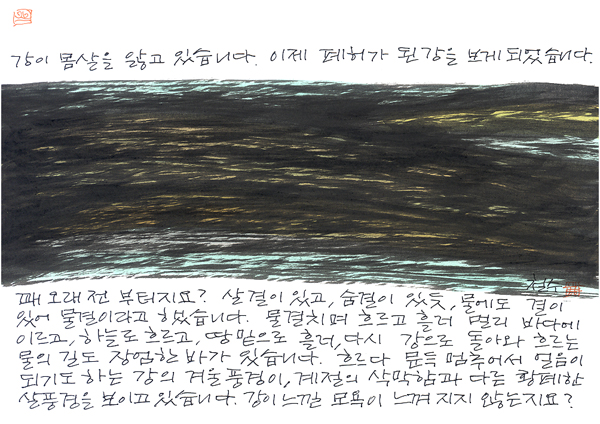 강이 몸살을 앓고 있습니다. 이제 폐허가 된 강을 보게 되었습니다.
철수
꽤 오래전 부터지요? 살결이 있고, 숨결이 있듯, 물에도 결이
있어 물결이라고 하였습니다. 물결치며 흐르고 흘러 멀리 바다에
이르고, 하늘로 흐르고, 땅 밑으로 흘러, 다시 강으로 돌아와 흐르는
물의 길도 장엄한 바가 있습니다. 흐르다 문득 멈추어서 얼음이
되기도 하는 강의 겨울 풍경이, 계절의 삭막함과 다른 황폐한
살풍경을 보이고 있습니다. 강이 느낄 모욕이 느껴지지 않는지요?